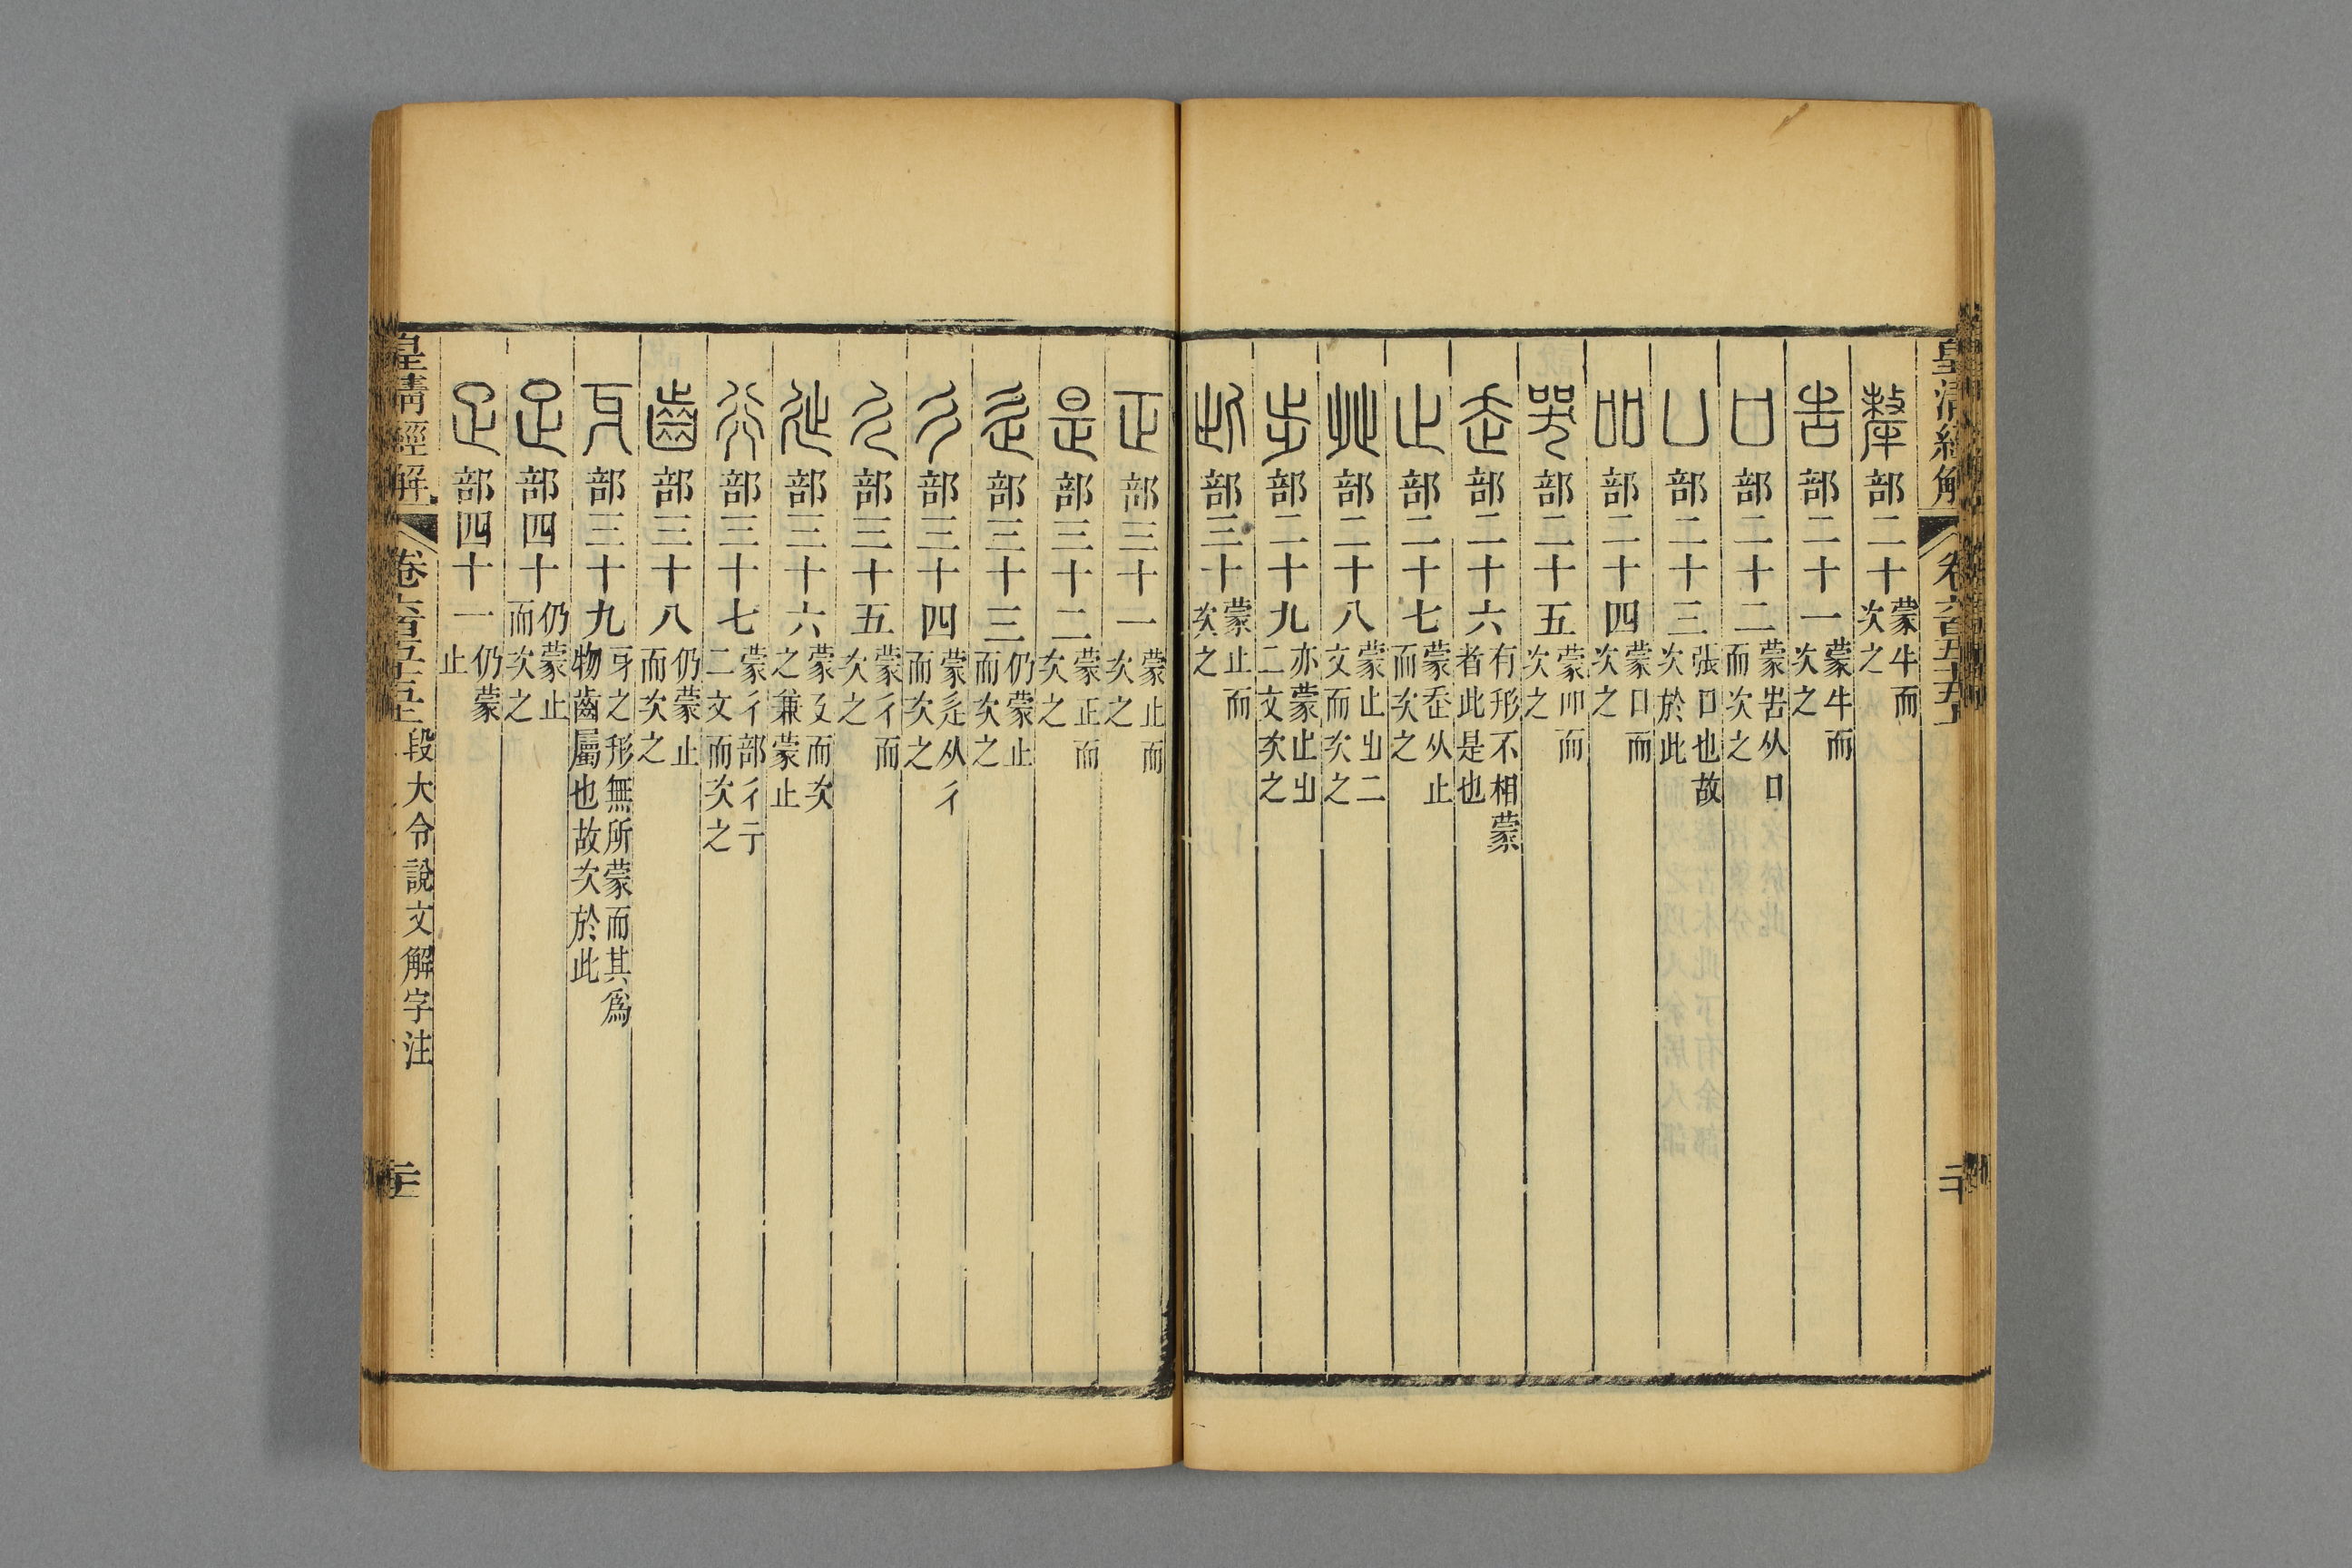 皇清經解 卷六百五十五 二十
犛部二十蒙牛而次之
告部二十一蒙牛而次之
口部二十二蒙告从口而次之
凵部二十三張口也故次於此
吅部二十四蒙口而次之
哭部二十五蒙吅而次之
走部二十六有形不相蒙者此是也
止部二十七蒙走从止而次之
癶部二十八蒙止𣥂二文而次之
步部二十九亦蒙止𣥂二文次之
此部三十蒙止而次之
正部三十一蒙止而次之
是部三十二蒙正而次之
辵部三十三仍蒙止而次之
彳部三十四蒙辵从彳而次之
廴部三十五蒙彳而次之
㢟部三十六蒙廴而次之兼蒙止
行部三十七蒙彳部彳亍二文而次之
齒部三十八仍蒙止而次之
牙部三十九牙之形無所蒙而其爲物齒屬也故次於此
足部四十仍蒙止而次之
疋部四十一仍蒙止
皇清經解 卷六百五十五 段大令說文解字注